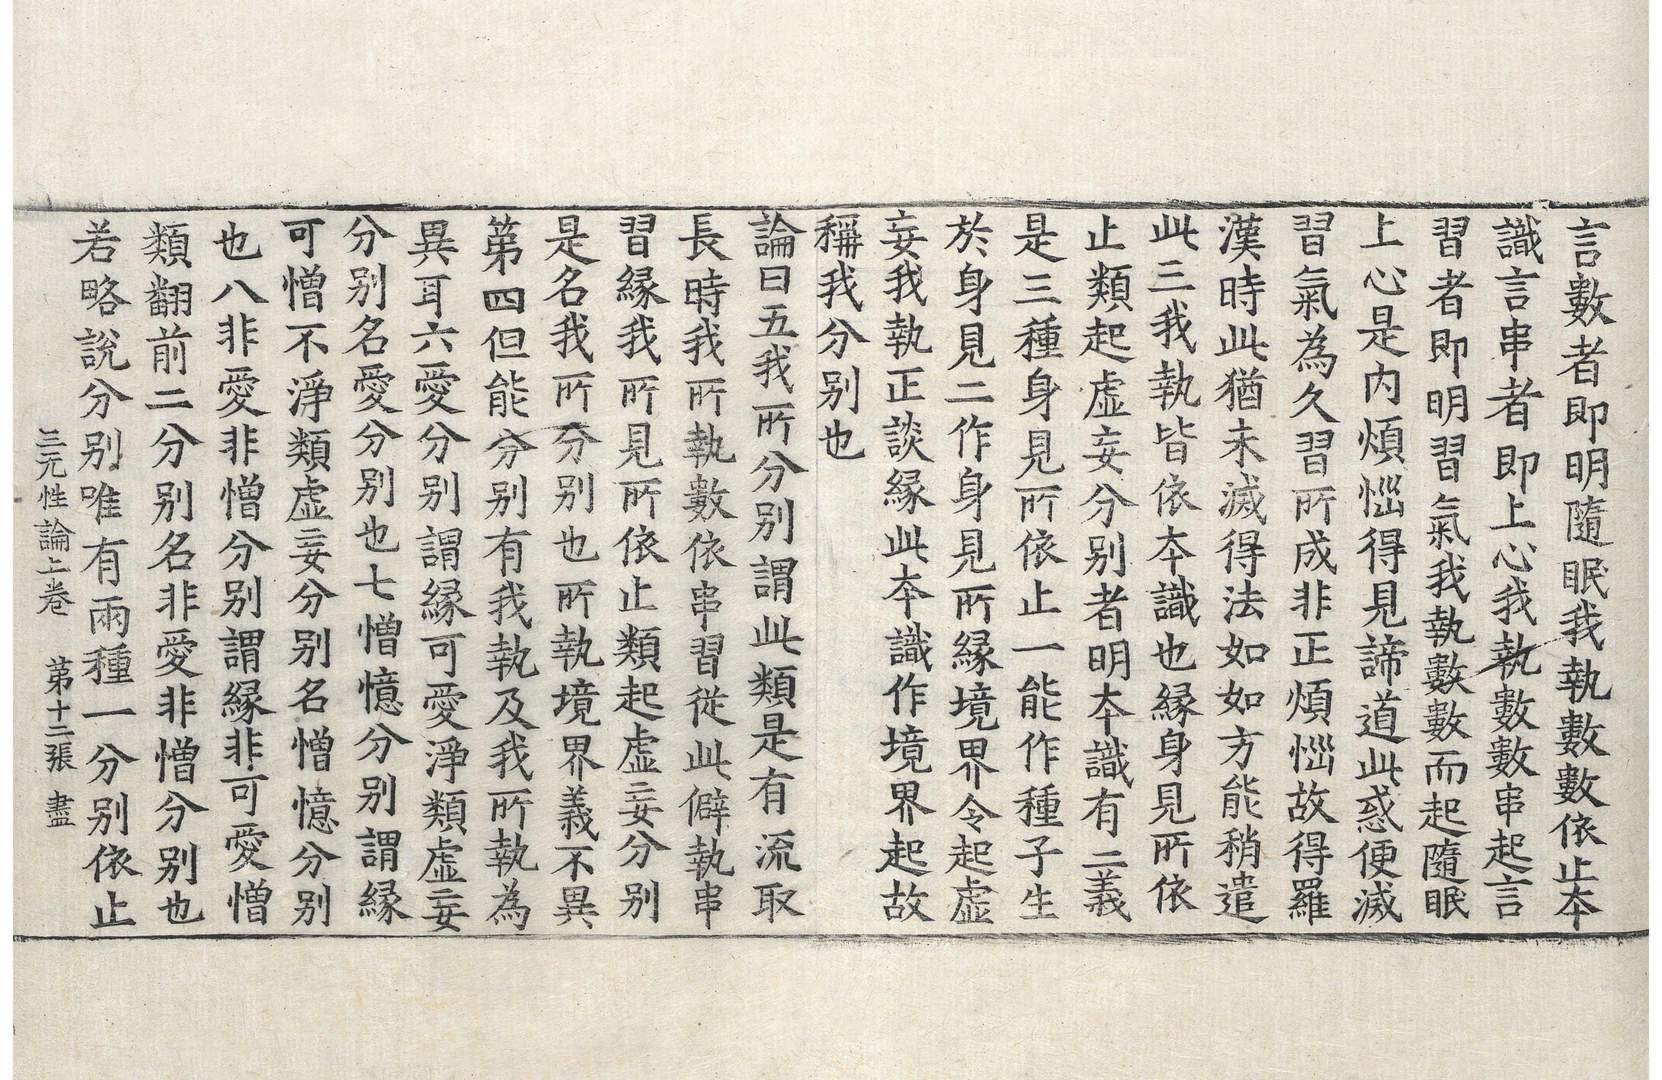 言數者即明隨眠我執數數依止本
識言串者即上心我執數數串起言
習者即明習氣我執數數而起隨眠
上心是內煩惱得見諦道此惑便滅
習氣為久習所成非正煩惱故得羅
漢時此猶未滅得法如如方能稍遣
此三我執皆依本識也緣身見所依
止類起虛妄分別者明本識有二義
是三種身見所依止一能作種子生
於身見二作身見所緣境界令起虛
妄我執正談緣此本識作境界起故
稱我分別也
論曰五我所分別謂此類是有流取
長時我所執數依串習從此僻執串
習緣我所見所依止類起虛妄分別
是名我所分別也所執境界義不異
第四但能分別有我執及我所執為
異耳六愛分別謂緣可愛淨類虛妄
分別名愛分別也七憎憶分別謂緣
可憎不淨類虛妄分別名憎憶分別
也八非愛非憎分別謂緣非可愛憎
類翻前二分別名非愛非憎分別也
若略說分別唯有兩種一分別依止
三无性論上卷 第十二張 盡